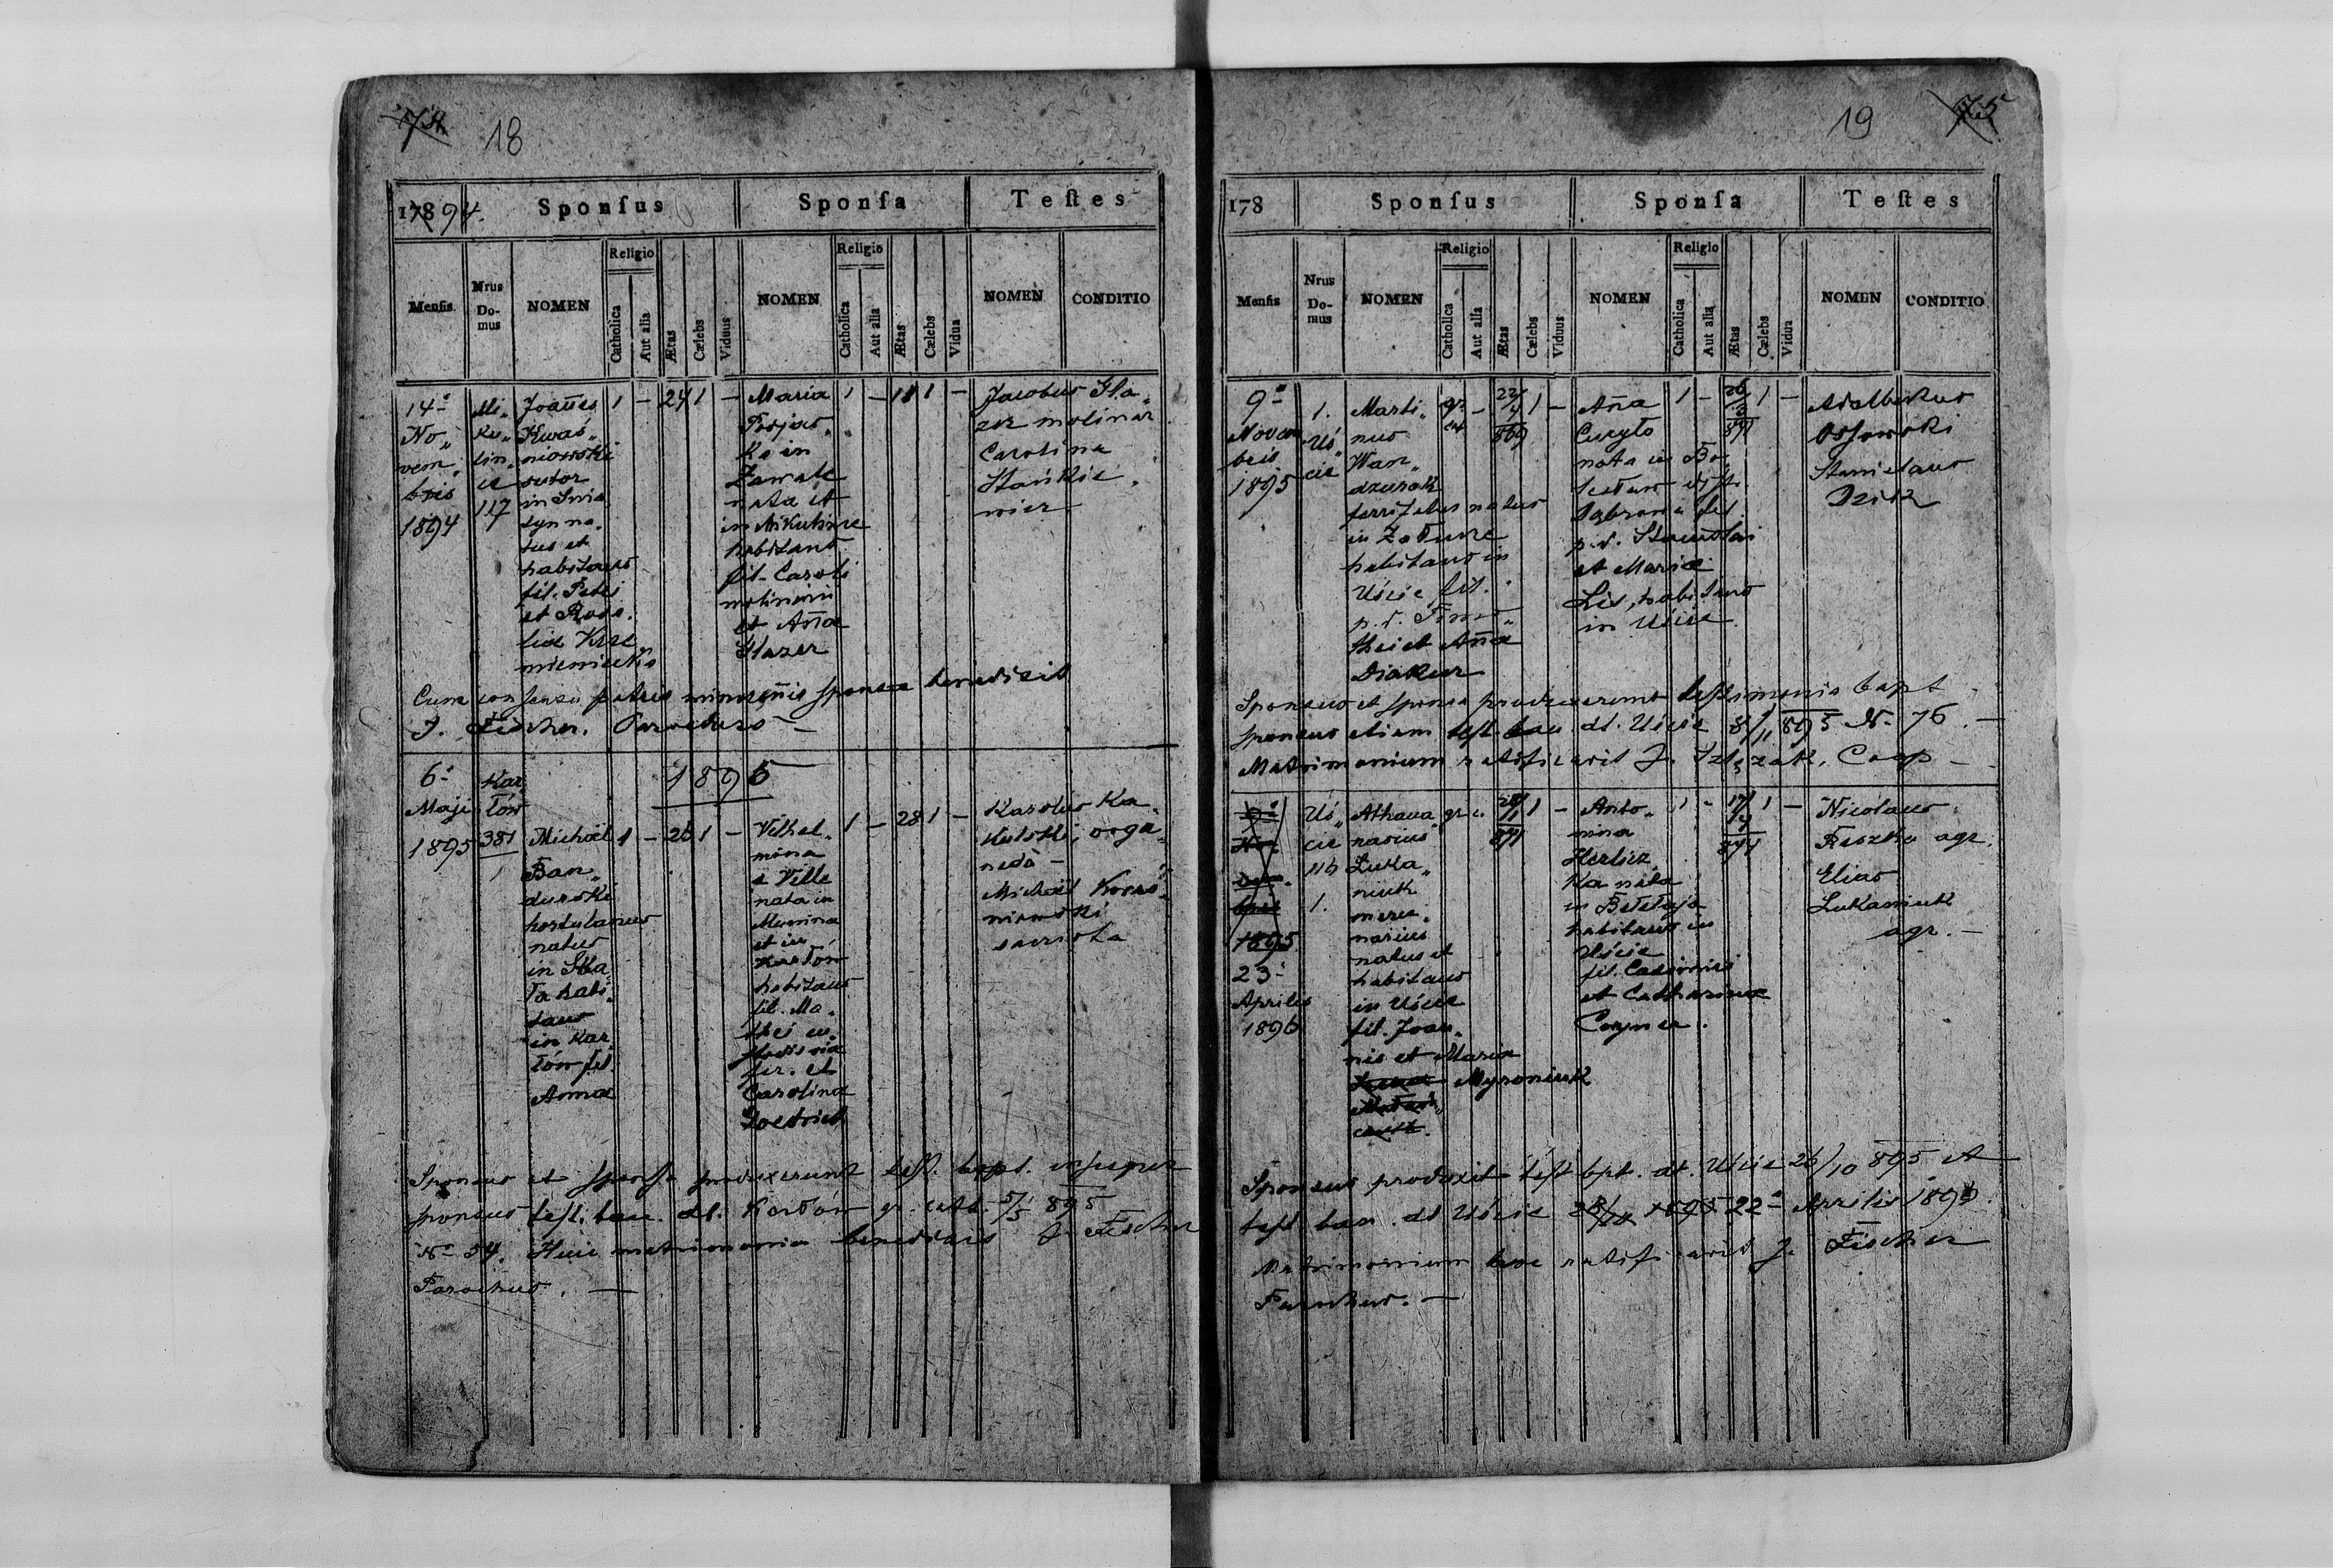 74 18
178 94. Sponsus Sponsa Testes
Mensis Nrus Domus NOMEN Religio Catholica Aut alia Ætas Cælebs Viduus NOMEN Religio Catholica Aut alia Ætas Cælebs Vidua NOMEN CONDITIO
14a
No„
vem„
bris
1894
Mi„
ku„
lin„
ce
117
Joañes
Kwaś„
niowski
sutor
in Snia
tyn na„
tus et
habitans
fil. Petri
et Rosa„
liæ Krze
mieniecki
1 – 24 1 –
Maria
in
nata et
in Mikulince
habitans
fil. Caroli
molinarii
et Aña
Glazer
1 – 18 1 –
Jacobus Gla„
zer molinar
Carolina
Stańkie„
wicz
Cum consensu patris minorenis sponsæ benedixit
J. Fischer. Parochus –
1895
6a
Maji
1895
Kar
łów
381
Michaël
Ban„
durski
hortulanus
natus
in Ska
ła habi„
tans
in Kar„
łów fil.
Annæ
1 – 26 1 –
Vilhel„
mina
e Ville
nata in
et in
Karłów
habitans
fil. Ma„
thei cu„
stodis viæ
fer. et
Carolina
1 – 28 1 –
Karolus Ka„
kulski, orga„
neda –
Michaël Kwaś„
niowski
Sponsus et sponsa produxerunt test. bapt. insuper
sponsus test. ban. dt. Karłów gr. cath. 5/5 895
No 54. Huic matrimonio benedixit J. Fischer
Parochus. —
19 75
178 Sponsus Sponsa Testes
Mensis Nrus Domus NOMEN Religio Catholica Aut alia Ætas Cælebs Viduus NOMEN Religio Catholica Aut alia Ætas Cælebs Vidua NOMEN CONDITIO
9a
Novem
bris
1895
1.
Uś„
cie
Marti„
nus
Wan„
dzurak
natus
in Załucze
habitans in
Uście fil.
p. d. Timo„
thei et Aña
Diakur
gr. cat – 1 –
869
Aña
Curyło
nata in Bo„
Dąbrowa fil.
p. d. Stanislai
et Mariæ
Lis, habitans
in Uście
1 – 1 –
Adalbertus
Stanislaus
Dzik
Sponsus et sponsa produxerunt testimonia bapt
sponsus etiam test. ban. dt. Uście 8/11 895 No 76. —
Matrimonium ratificavit J. Coop –
1895
23a
Aprilis
1896
Uś„
cie
116
1.
Athana„
nasius
Łuka„
niuk
merce„
narius
natus et
habitans
in Uście
fil. Joan„
nis et Mariæ
Myroniuk
gr. c. 1 –
871
Anto„
nina
ka nata
in Bełełuja
habitans in
Uście
fil. Casimiri
et Catharinæ
1 – 1 –
Nicolaus
Feszko agr.
Elias
Lukaniuk
agr. –
Sponsus produxit test bpt. dt. Uście 26/10 895 et
test ban. dt Uście 22a Aprilis 1896.
Matrimonium hoc ratificavit J. Fischer
Parochus. —